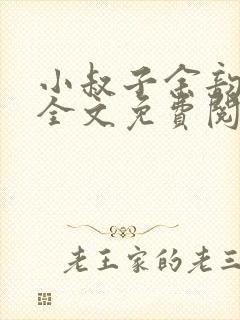 小叔子全部
全文免費閱
老王家的老三